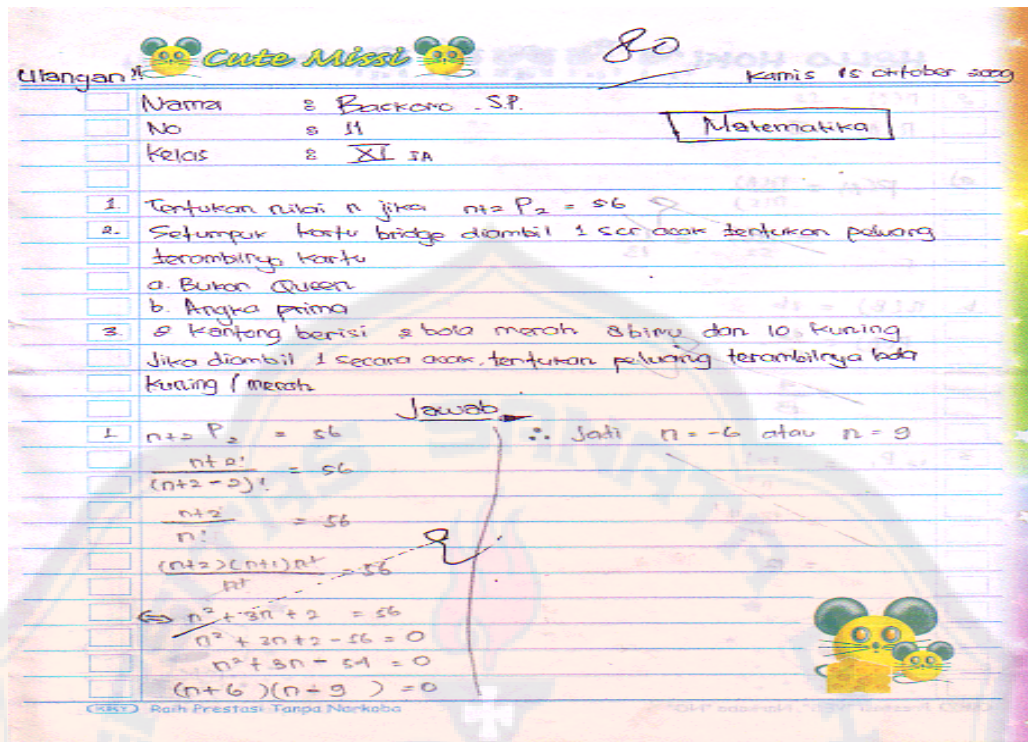 Cute Missi
80
Ulangan
Kamis 15 oktober 2009
Nama : Backoro . S.P.
No : 11
Matematika
Kelas : XI IA
1 Tentukan nilai n jika n+2 P2 = 56
2. Setumpuk kartu bridge diambil 1 scr acak tentukan peluang
terambilnya kartu
a. Bukan Queen
b. Angka prima
3. kantong berisi 2 bola merah 8 biru dan 10 kuning
Jika diambil 1 secara acak. tentukan peluang terambilnya bola
kuning / merah
Jawab
1 n+2 P2 = 56
∴ Jadi n = -6 atau n = 9
n+2! / (n+2-2)! = 56
n+2 / n! = 56
(n+2)(n+1)n! / n! = 56
⇔ n² + 3n + 2 = 56
n² + 3n + 2 - 56 = 0
n² + 3n - 54 = 0
(n+6)(n-9) = 0
KIKY Raih Prestasi Tanpa Narkoba